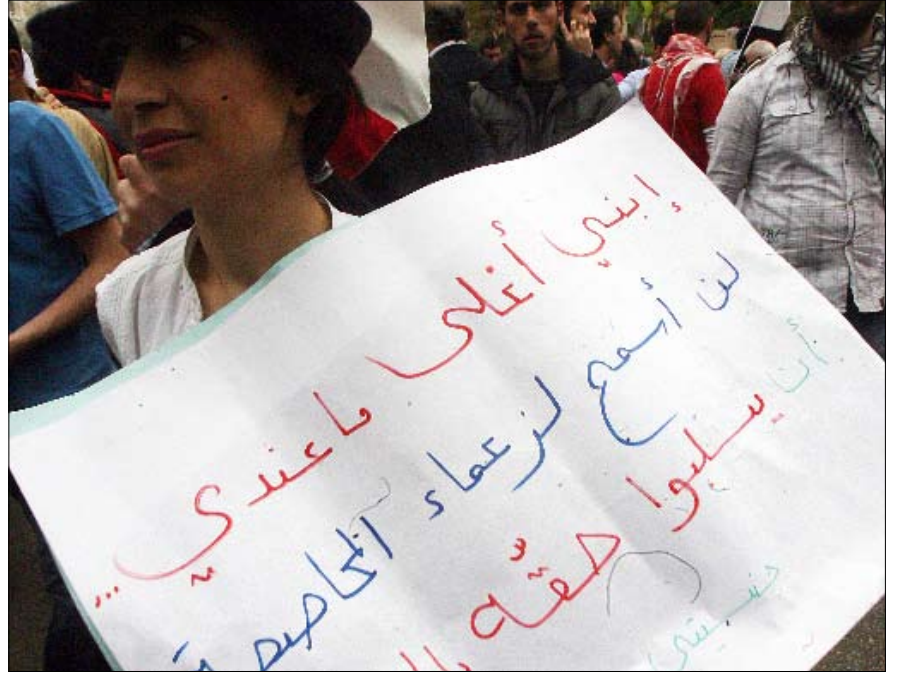 إبني أغلى ما عندي...
لن أسمح لزعماء المحاصصة
أن يسلبوا حقّه بال
جنسيتي